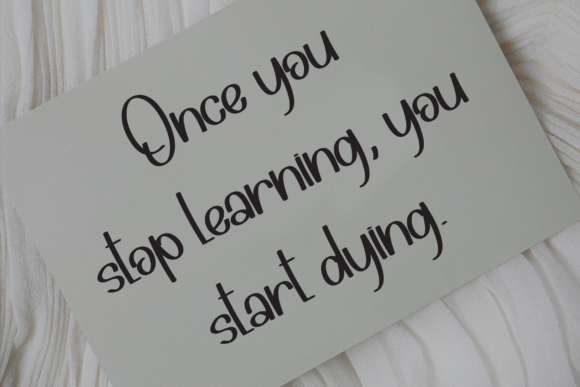 Once you
stop learning, you
start dying.